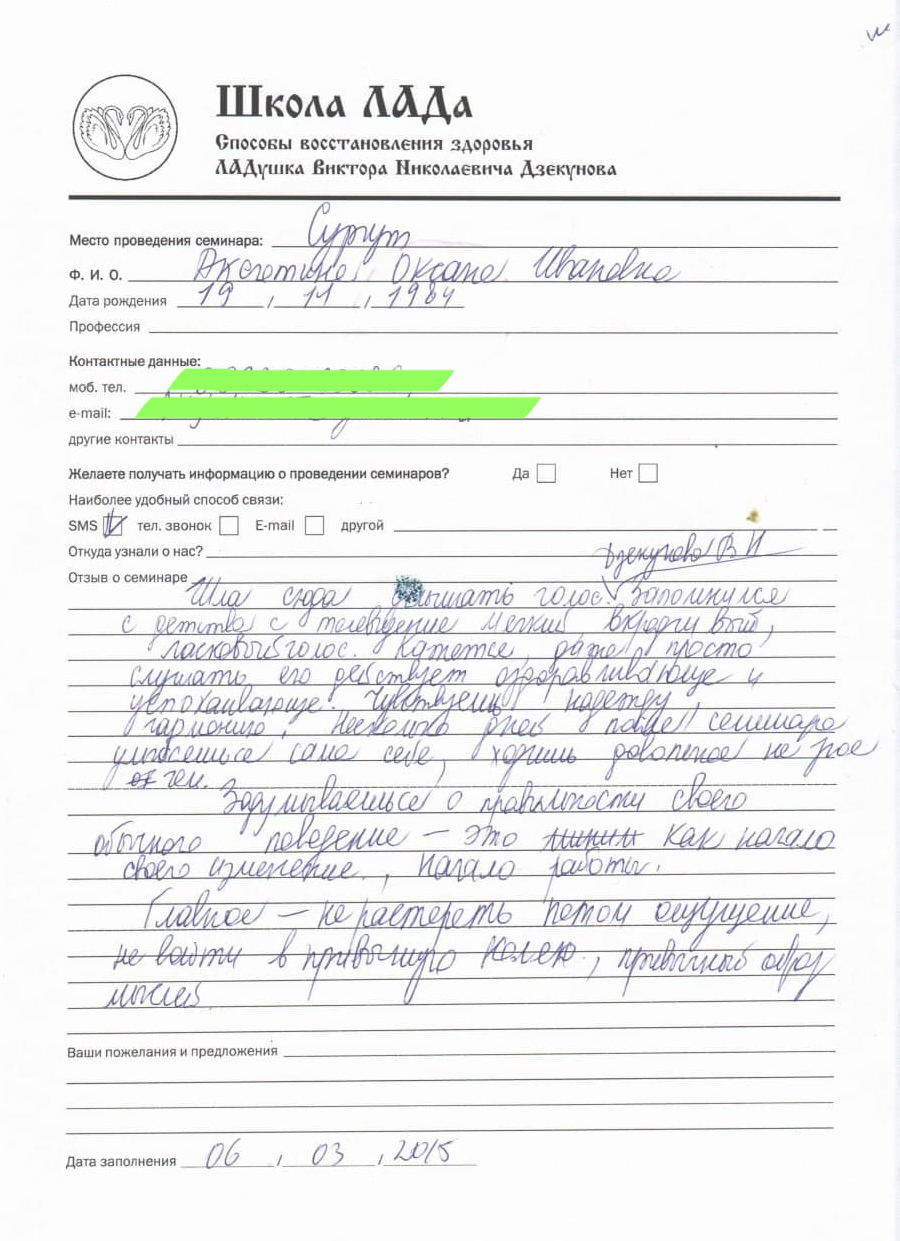 Школа ЛАДа
Способы восстановления здоровья
ЛАДушка Виктора Николаевича Дзекунова
Место проведения семинара: Сургут
Ф. И. О. Оксана Ивановна
Дата рождения 19 , 11 , 1984
Профессия
Контактные данные:
моб. тел.
e-mail:
другие контакты
Желаете получать информацию о проведении семинаров? Да Нет
Наиболее удобный способ связи:
SMS тел. звонок E-mail другой
Откуда узнали о нас?
Дзекунова В Н
Отзыв о семинаре
Шла сюда слышать голос. Запомнился
с детства с телевидение мягкий вкрадчивый,
ласковый голос. Кажется, даже просто
слушать его действует оздоравливающе и
успокаивающе. Чувствуешь надежду,
гармонию. Несколько дней после семинара
улыбаешься сама себе, ходишь довольная не зная
от чем.
Задумываешься о правильности своего
обычного поведение – это как начало
своего изменение., начало работы.
Главное – не растерять потом ощущение,
не войти в привычную колею., привычный образ
мыслей.
Ваши пожелания и предложения
Дата заполнения 06 , 03 , 2015